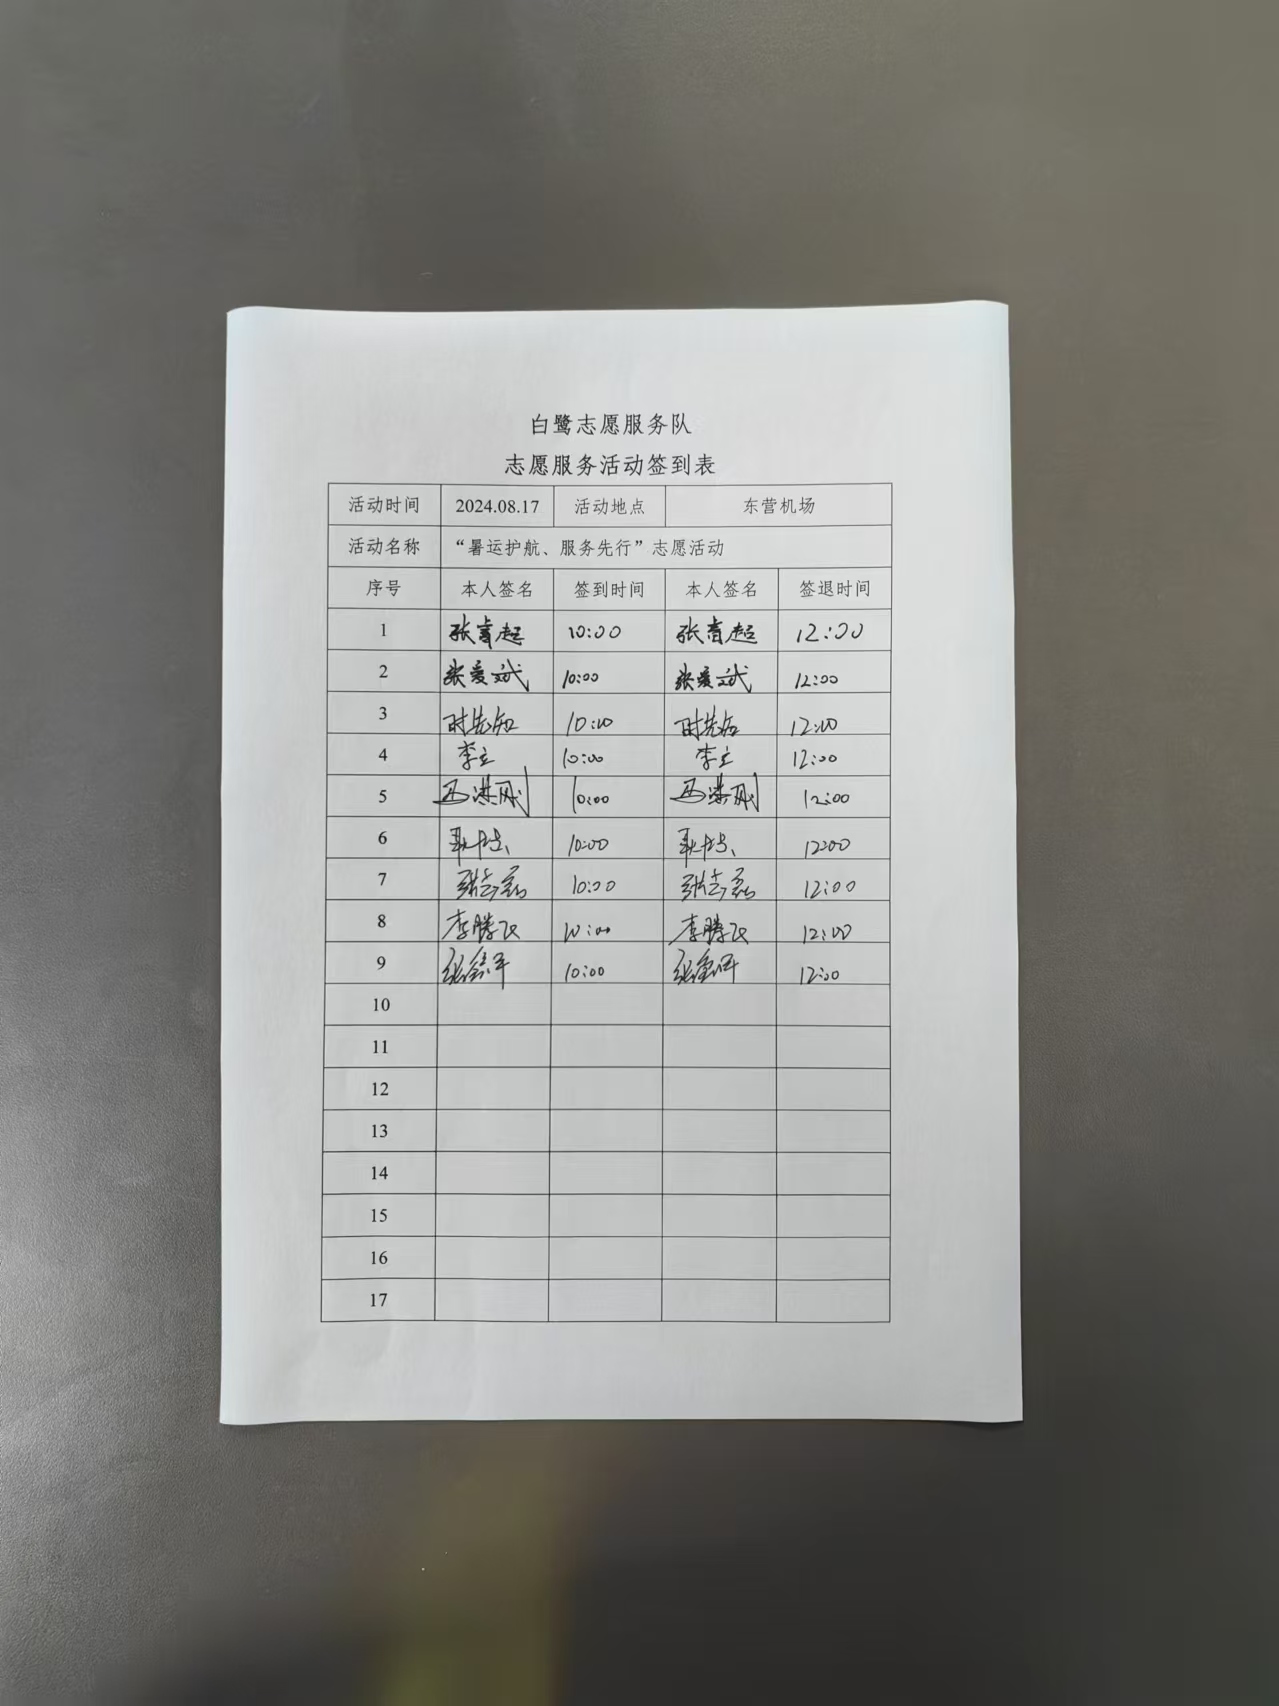 白鹭志愿服务队
志愿服务活动签到表
活动时间 2024.08.17 活动地点 东营机场
活动名称 “暑运护航、服务先行”志愿活动
序号 本人签名 签到时间 本人签名 签退时间
1 张育超 10:00 张育超 12:00
2 张爱斌 10:00 张爱斌 12:00
3 时先知 10:00 时先知 12:00
4 李立 10:00 李立 12:00
5 10:00 12:00
6 10:00 12:00
7 张志磊 10:00 张志磊 12:00
8 李腾飞 10:00 李腾飞 12:00
9 10:00 12:00
10
11
12
13
14
15
16
17